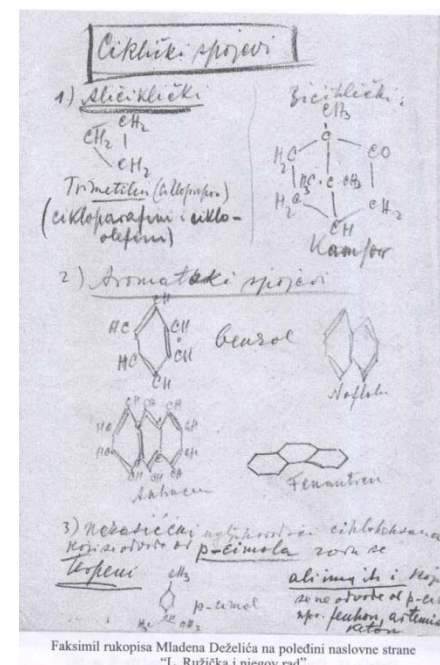 Ciklički spojevi
1) Aliciklički
Biciklički:
CH₂
CH₂
CH₂
Trimetilen (ciklopropan)
(cikloparafini i ciklo-
olefini)
CH₃
C
H₂C
CO
H₃C · C · CH₃
H₂C
CH₂
CH
Kamfor
2) Aromatski spojevi
CH
HC
CH
HC
CH
CH
benzol
Naftalin
Antracen
Fenantren
3) nezasićeni ugljikovodici cikloheksana
koji se odvode od p-cimola zovu se
terpeni
ali im ih i koji
se ne odvode od p-ci
npr. fenhon, artemis
keton
CH₃
p-cimol
H₃C CH CH₃
Faksimil rukopisa Mladena Deželića na poleđini naslovne strane
"L. Ružička i njegov rad"